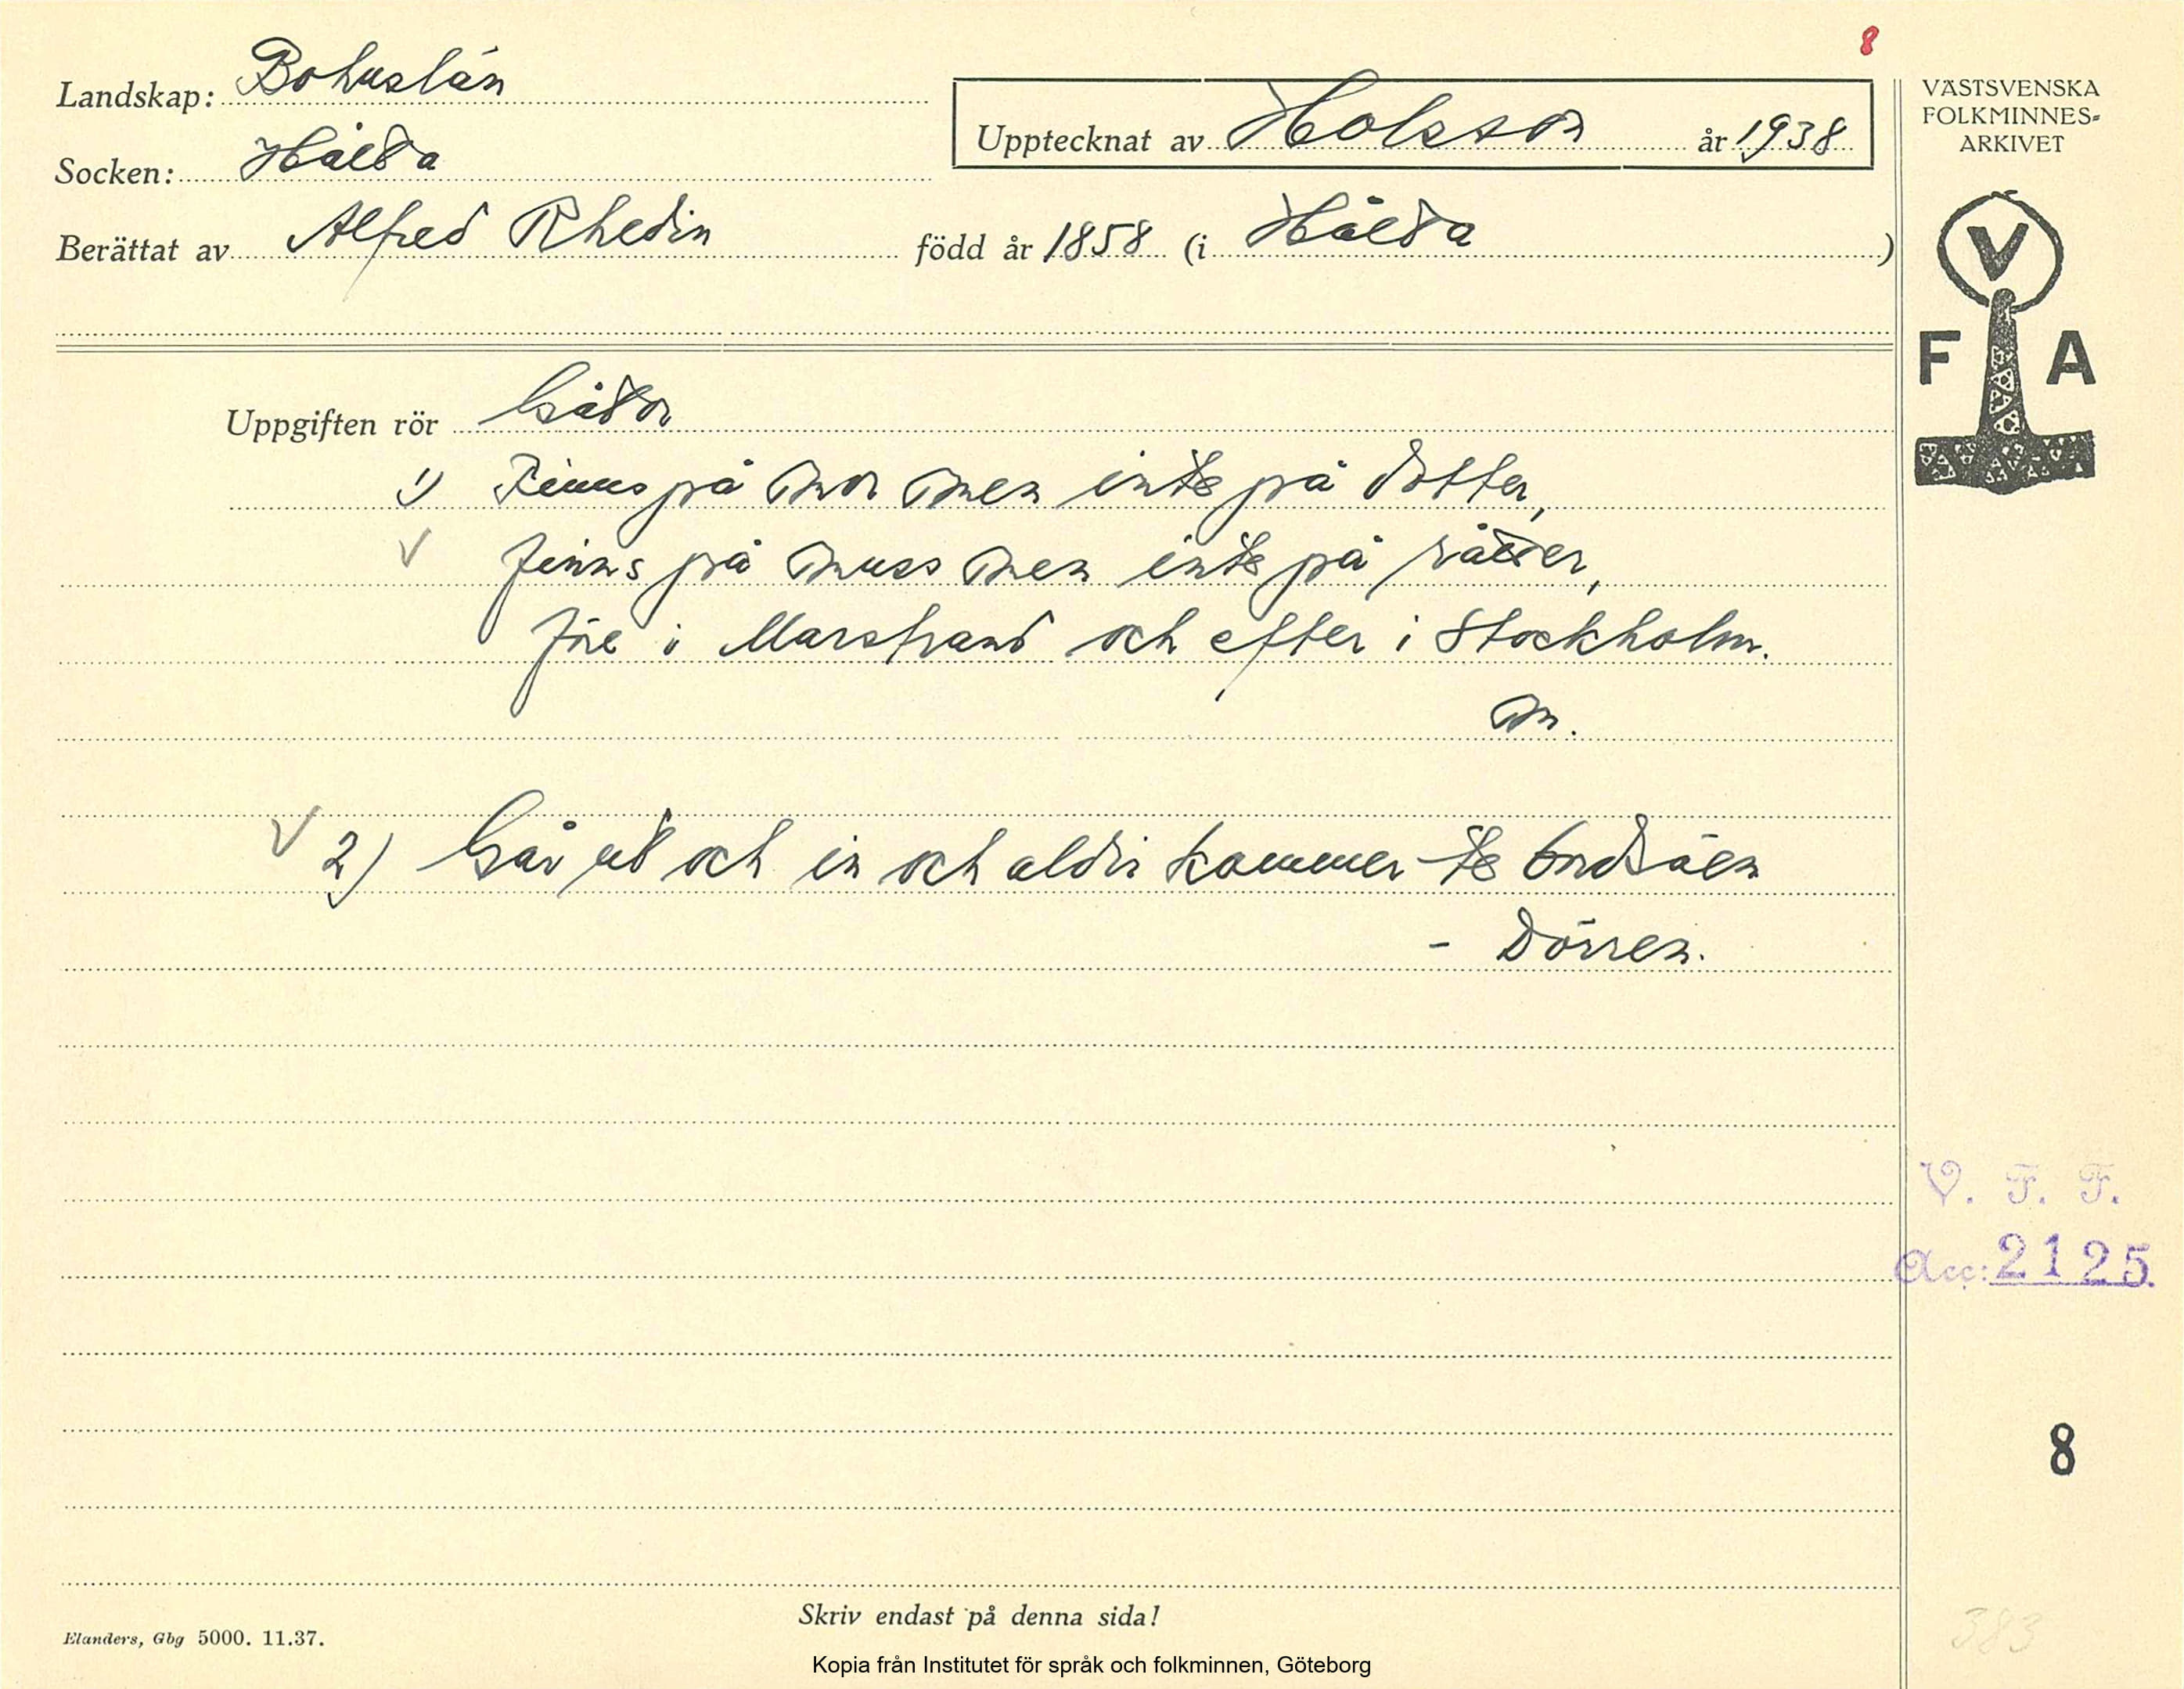 8
Landskap: Bohuslän
Socken: Hålta
Berättat av Alfred Rhedin född år 1858 (i Hålta)
Upptecknat av Holsson år 1938
VÄSTSVENSKA
FOLKMINNES=
ARKIVET
V
F A
Uppgiften rör Gåtor
1) Finns på mor men inte på dotter,
V finns på muss men inte på råtter,
före i Marstrand och efter i Stockholm.
m.
V 2) Går ut och in och aldri kommer te
- Dörren.
V. F. F.
Acc: 2125.
8
Skriv endast på denna sida!
Elanders, Gbg 5000. 11.37.
383
Kopia från Institutet för språk och folkminnen, Göteborg